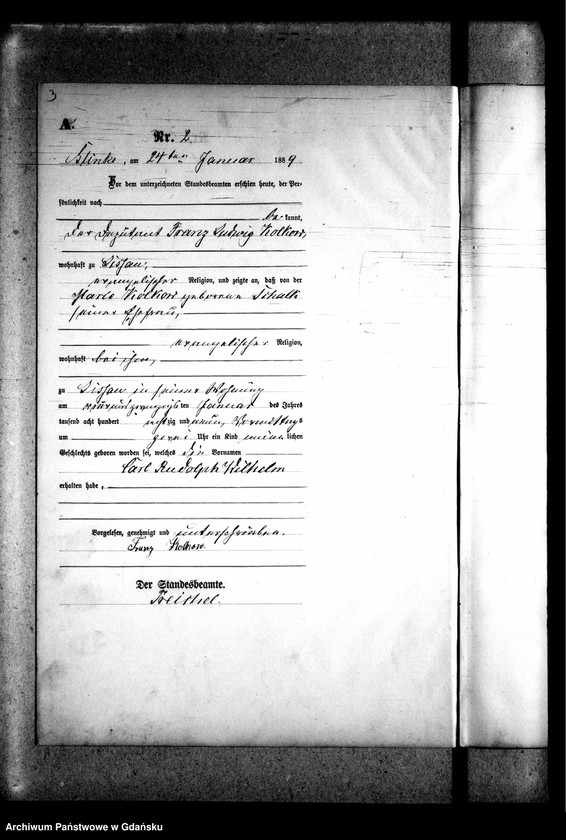 3
A.
Nr. 2
am 24ten Januar 1889
Vor dem unterzeichneten Standesbeamten erschien heute, der Per-
sönlichkeit nach
be kannt,
der Franz Ludwig Kolkow,
wohnhaft zu Lissau,
evangelischer Religion, und zeigte an, daß von der
Marie Kolkow geborene
seiner Ehefrau,
evangelischer Religion,
wohnhaft bei ihm,
zu Lissau in seiner Wohnung
am ten Januar des Jahres
tausend acht hundert achtzig und neun, Vormittags
um zwei Uhr ein Kind männlichen
Geschlechts geboren worden sei, welches die Vornamen
Carl Rudolph Wilhelm
erhalten habe.
Vorgelesen, genehmigt und unterschrieben.
Franz Kolkow.
Der Standesbeamte.
Archiwum Państwowe w Gdańsku